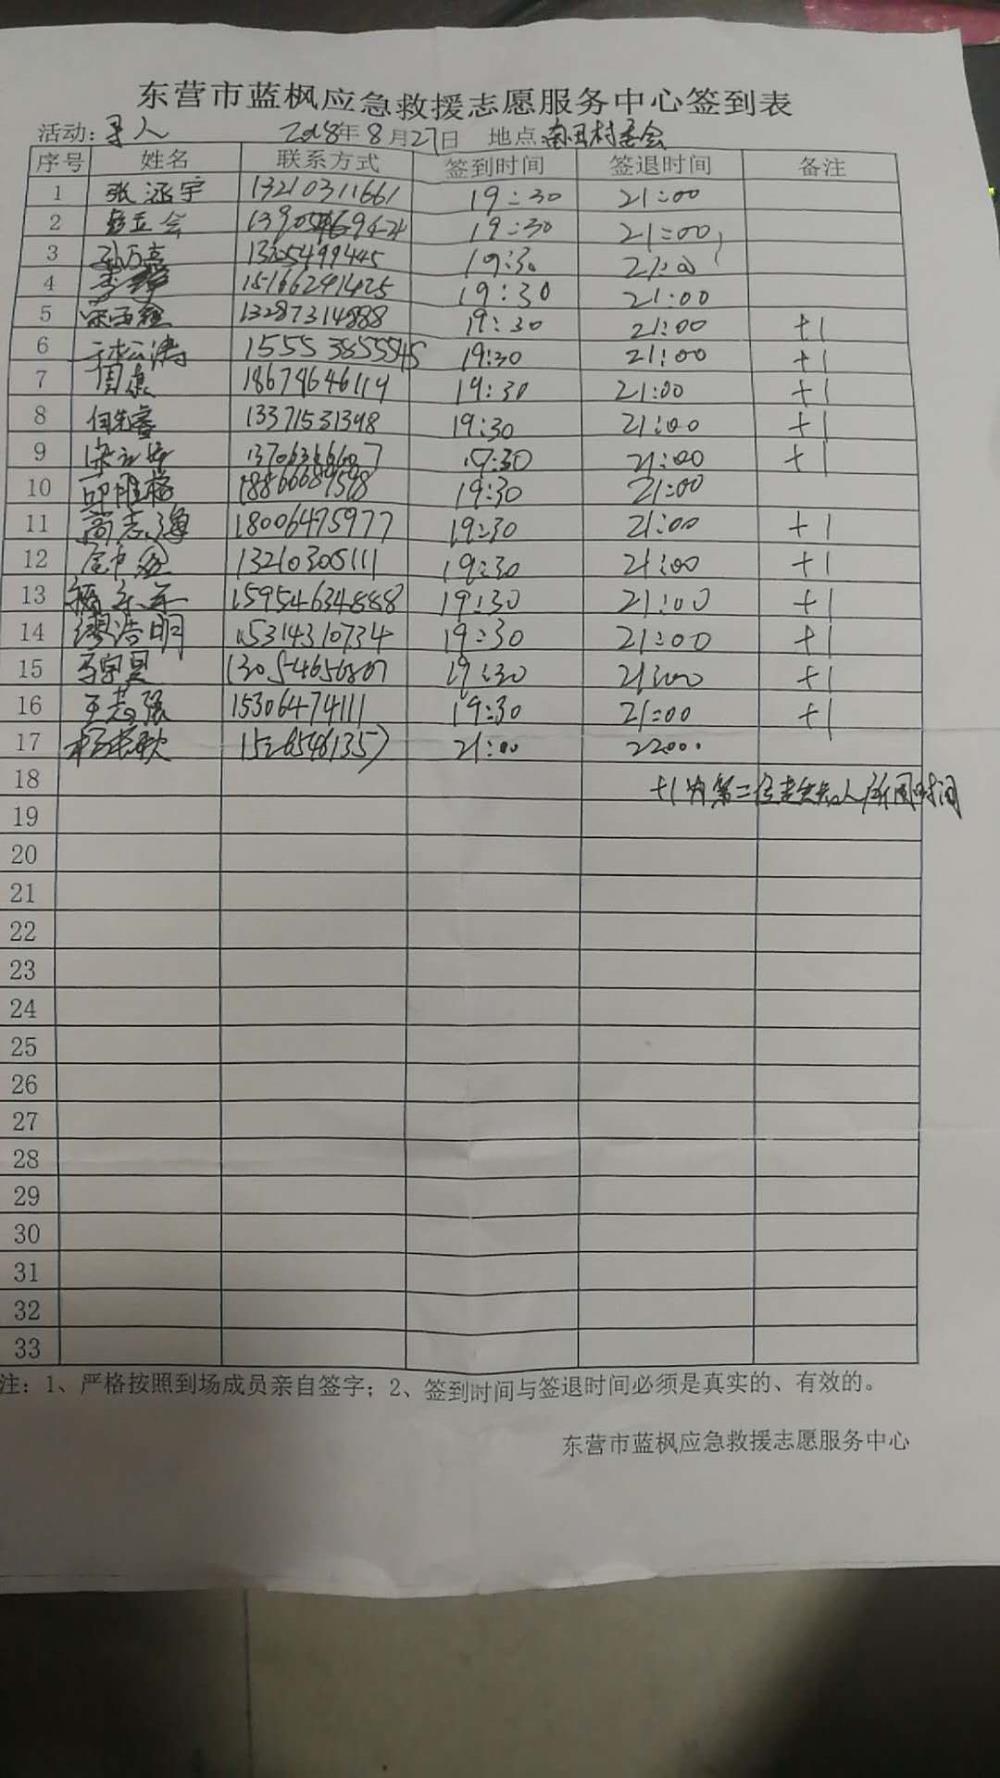 东营市蓝枫应急救援志愿服务中心签到表
活动:寻人 2018年8月27日 地点 村委会
序号 姓名 联系方式 签到时间 签退时间 备注
1 张涵宇 13210311661 19:30 21:00
2 19:30 21:00
3 孙万亮 19:30 21:00
4 李 15166291425 19:30 21:00
5 13287314888 19:30 21:00 +1
6 于松涛 15553855545 19:30 21:00 +1
7 周康 19:30 21:00 +1
8 13371531398 19:30 21:00 +1
9 19:30 21:00 +1
10 18866689598 19:30 21:00
11 高志海 18006475977 19:30 21:00 +1
12 13210305111 19:30 21:00 +1
13 15954634888 19:30 21:00 +1
14 缪浩明 15314310734 19:30 21:00 +1
15 19:30 21:00 +1
16 王志强 15306474111 19:30 21:00 +1
17 21:00 22:00
18 +1为第二位走失老人所用时间
19
20
21
22
23
24
25
26
27
28
29
30
31
32
33
注：1、严格按照到场成员亲自签字；2、签到时间与签退时间必须是真实的、有效的。
东营市蓝枫应急救援志愿服务中心